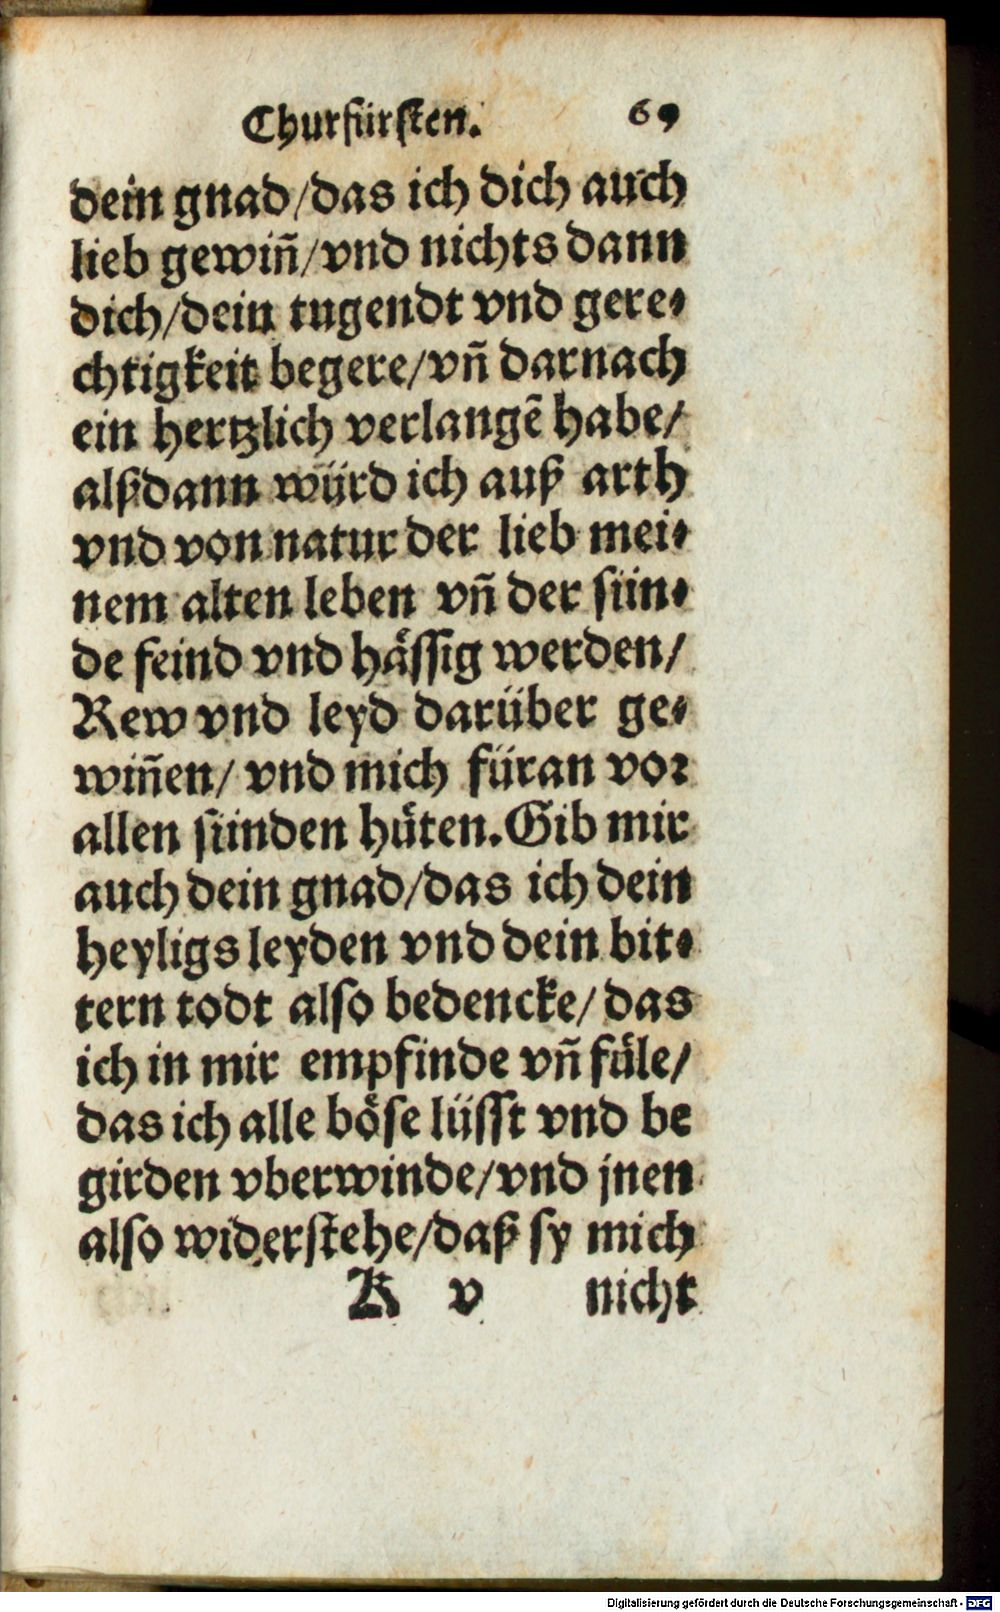 Churfürsten. 69
dein gnad/das ich dich auch
lieb gewiñ/vnd nichts dann
dich/dein tugendt vnd gere⸗
chtigkeit begere/vñ darnach
ein hertzlich verlangẽ habe/
alßdann würd ich auß arth
vnd von natur der lieb mei⸗
nem alten leben vñ der sün⸗
de feind vnd hässig werden/
Rew vnd leyd darüber ge⸗
wiñen/ vnd mich füran vor
allen sünden hüten. Gib mir
auch dein gnad/das ich dein
heyligs leyden vnd dein bit⸗
tern todt also bedencke/das
ich in mir empfinde vñ füle/
das ich alle böse lüsst vnd be
girden vberwinde/vnd jnen
also widerstehe/daß sy mich
K v nicht
Digitalisierung gefördert durch die Deutsche Forschungsgemeinschaft - DFG